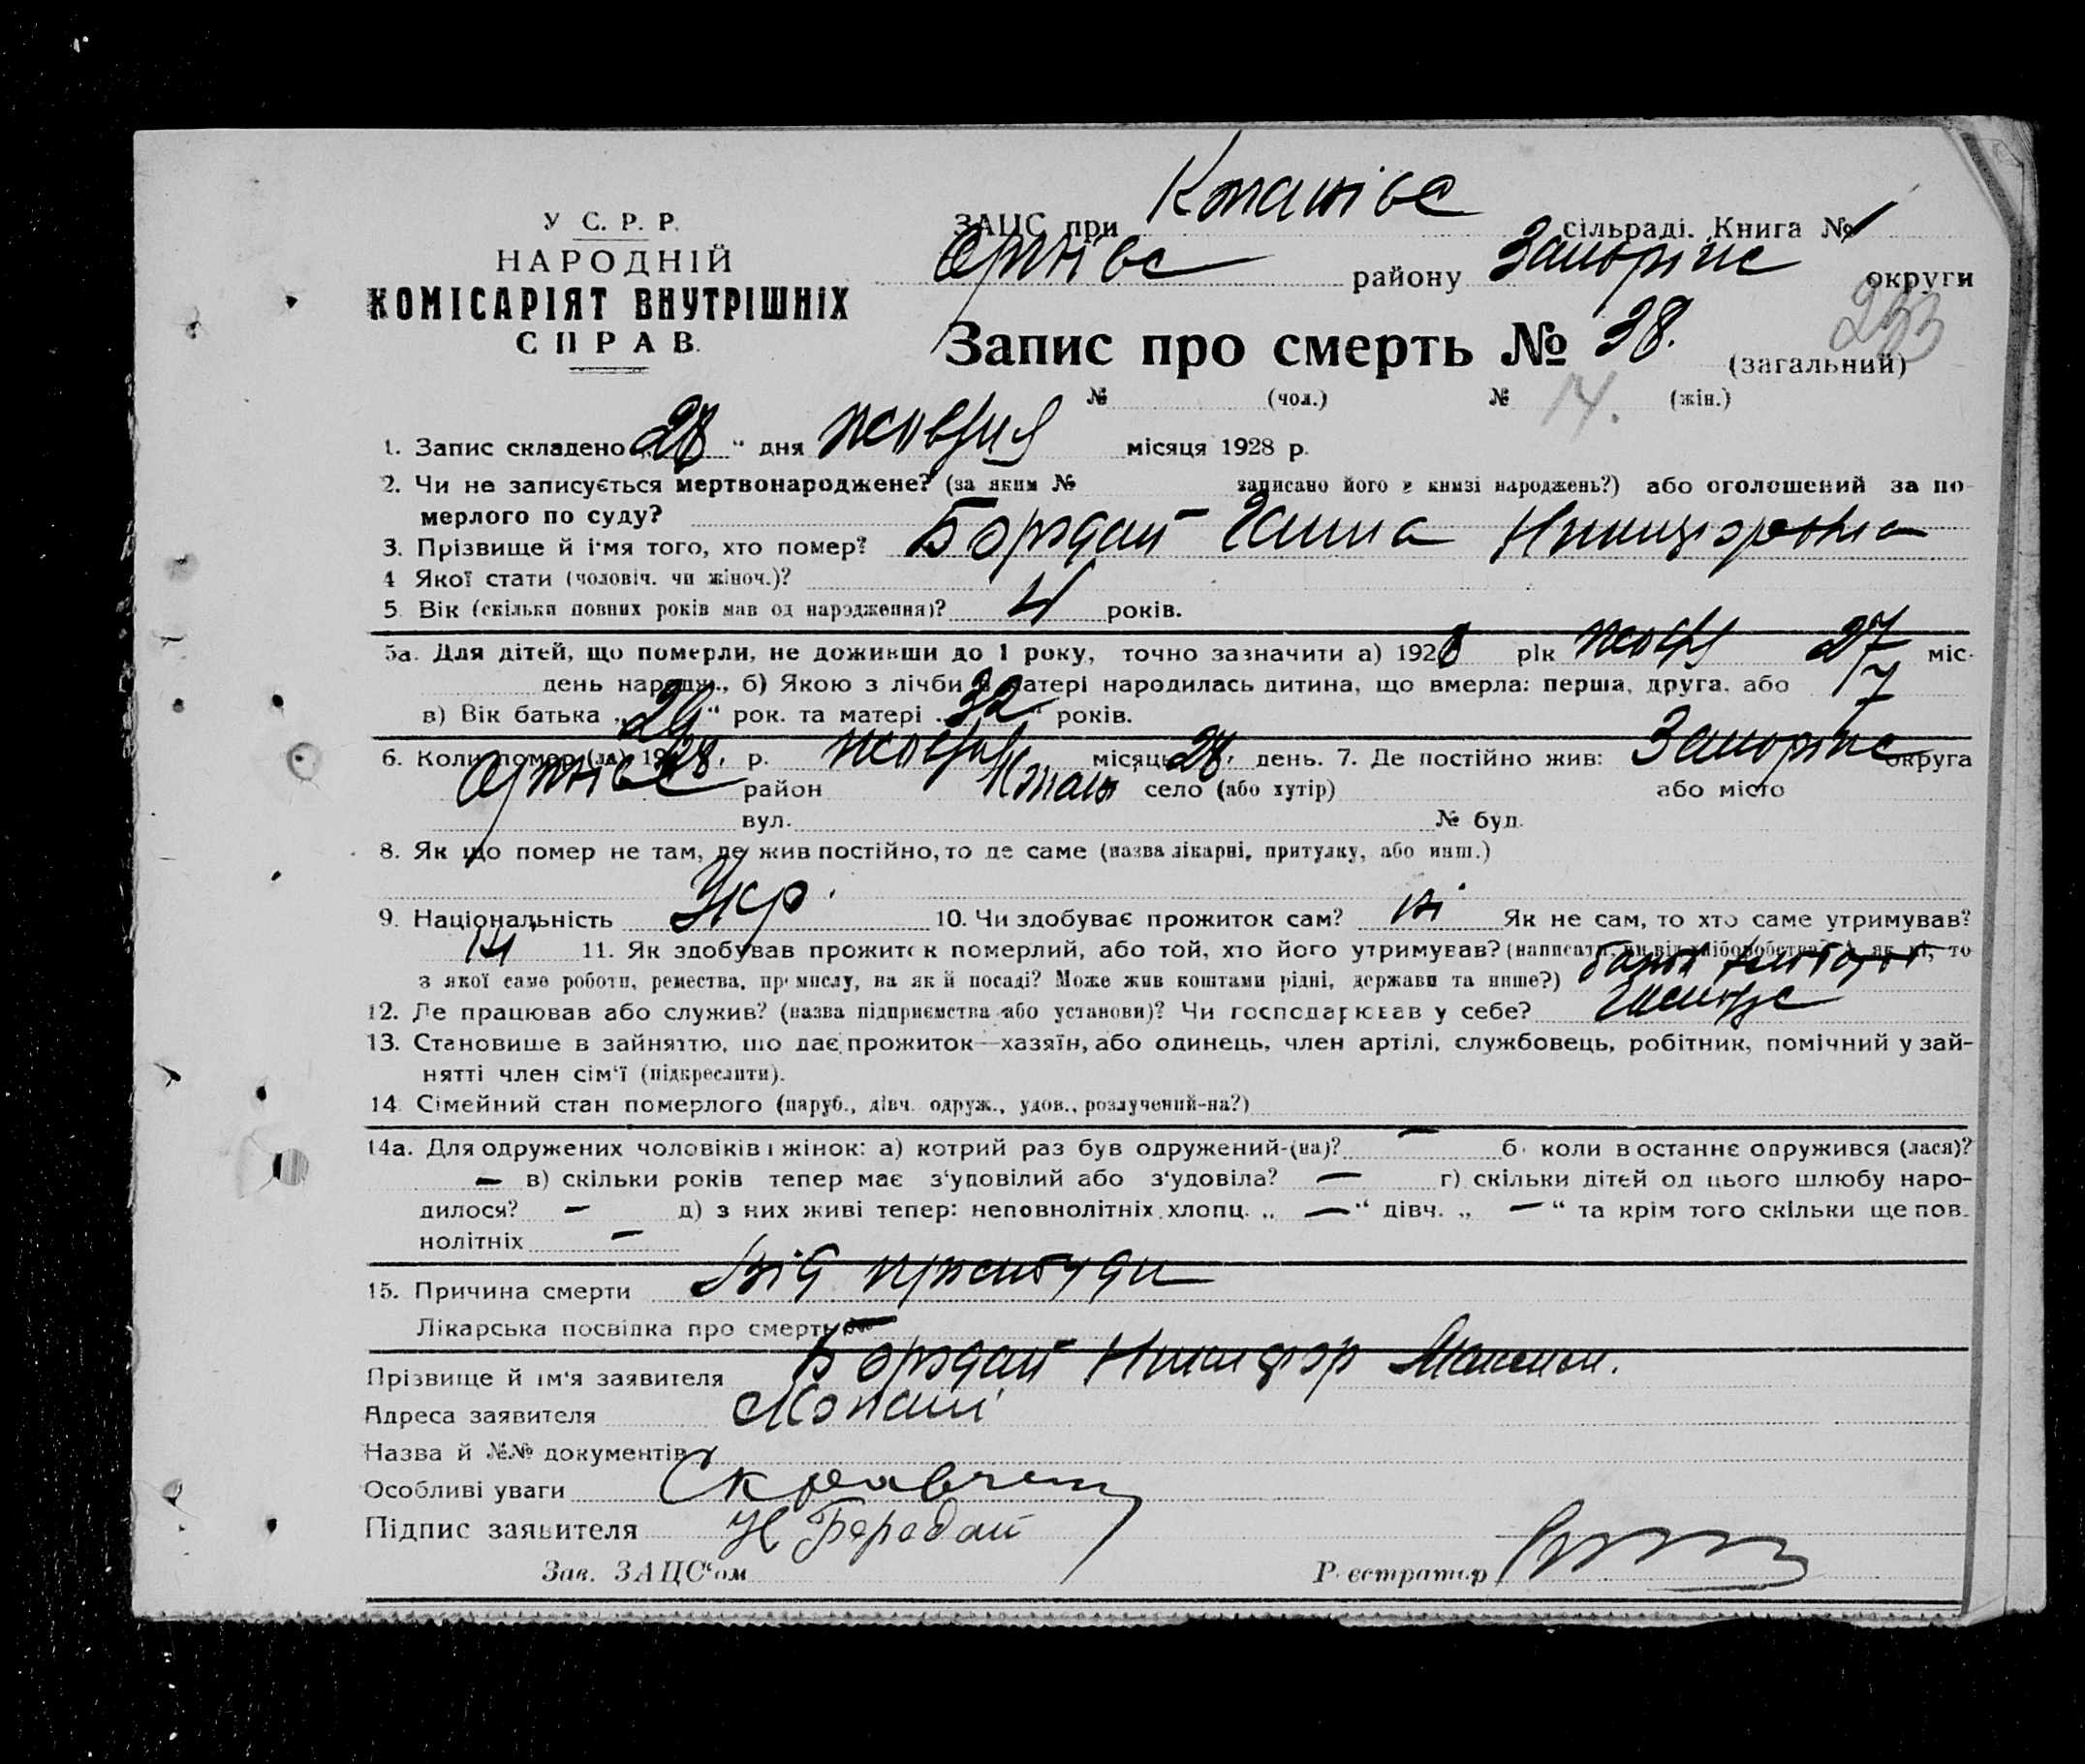 У С. Р. Р.
НАРОДНІЙ
КОМІСАРІЯТ ВНУТРІШНІХ
СПРАВ.
ЗАЦС при сільраді. Книга № 1
району Запоріж округи
Запис про смерть № 38. (загальний)
№ (чол.) № 14. (жін.)
1. Запис складено „28“ дня жовтня місяця 1928 р.
2. Чи не записується мертвонароджене? (за яким № записано його в книзі народжень?) або оголошений за по-
мерлого по суду?
3. Прізвище й ім'я того, хто помер? Бородай Ганна Никифоровна
4 Якої стати (чоловіч. чи жіноч.)?
5. Вік (скільки повних років мав од народження)? років.
5а. Для дітей, що померли, не доживши до 1 року, точно зазначити а) 192 рік 27 міс.
день народж., б) Якою з лічби в матері народилась дитина, що вмерла: перша, друга, або
в) Вік батька „ “ рок. та матері „32“ років.
6. Коли помер (ла) 1928. р. місяць 28. день. 7. Де постійно жив: Запоріж округа
район село (або хутір) або місто
вул. № буд.
8. Як що помер не там, де жив постійно, то де саме (назва лікарні, притулку, або инш.)
9. Національність Укр. 10. Чи здобуває прожиток сам? ні Як не сам, то хто саме утримував?
11. Як здобував прожиток померлий, або той, хто його утримував? (написати, чи від хліборобства? А як ні, то
з якої саме роботи, ремества, промислу, на якій посаді? Може жив коштами рідні, держави та инше?)
12. Де працював або служив? (назва підприємства або установи)? Чи господарював у себе?
13. Становище в зайняттю, що дає прожиток—хазяїн, або одинець, член артілі, службовець, робітник, помічний у зай-
нятті член сім'ї (підкреслити).
14. Сімейний стан померлого (паруб., дівч. одруж., удов., розлучений-на?)
14а. Для одружених чоловіків і жінок: а) котрий раз був одружений-(на)? — б) коли востаннє одружився (лася)?
— в) скільки років тепер має з'уповілий або з'удовіла? — г) скільки дітей од цього шлюбу наро-
дилося? — д) з них живі тепер: неповнолітніх хлопц. „—“ дівч. „—“ та крім того скільки ще пов-
нолітніх —
15. Причина смерти Від простуди
Лікарська посвідка про смерть №
Прізвище й ім'я заявителя Бородай Никифор Максим.
Адреса заявителя
Назва й №№ документів
Особливі уваги
Підпис заявителя Н Бородай
Зав. ЗАЦС'ом Реєстратор